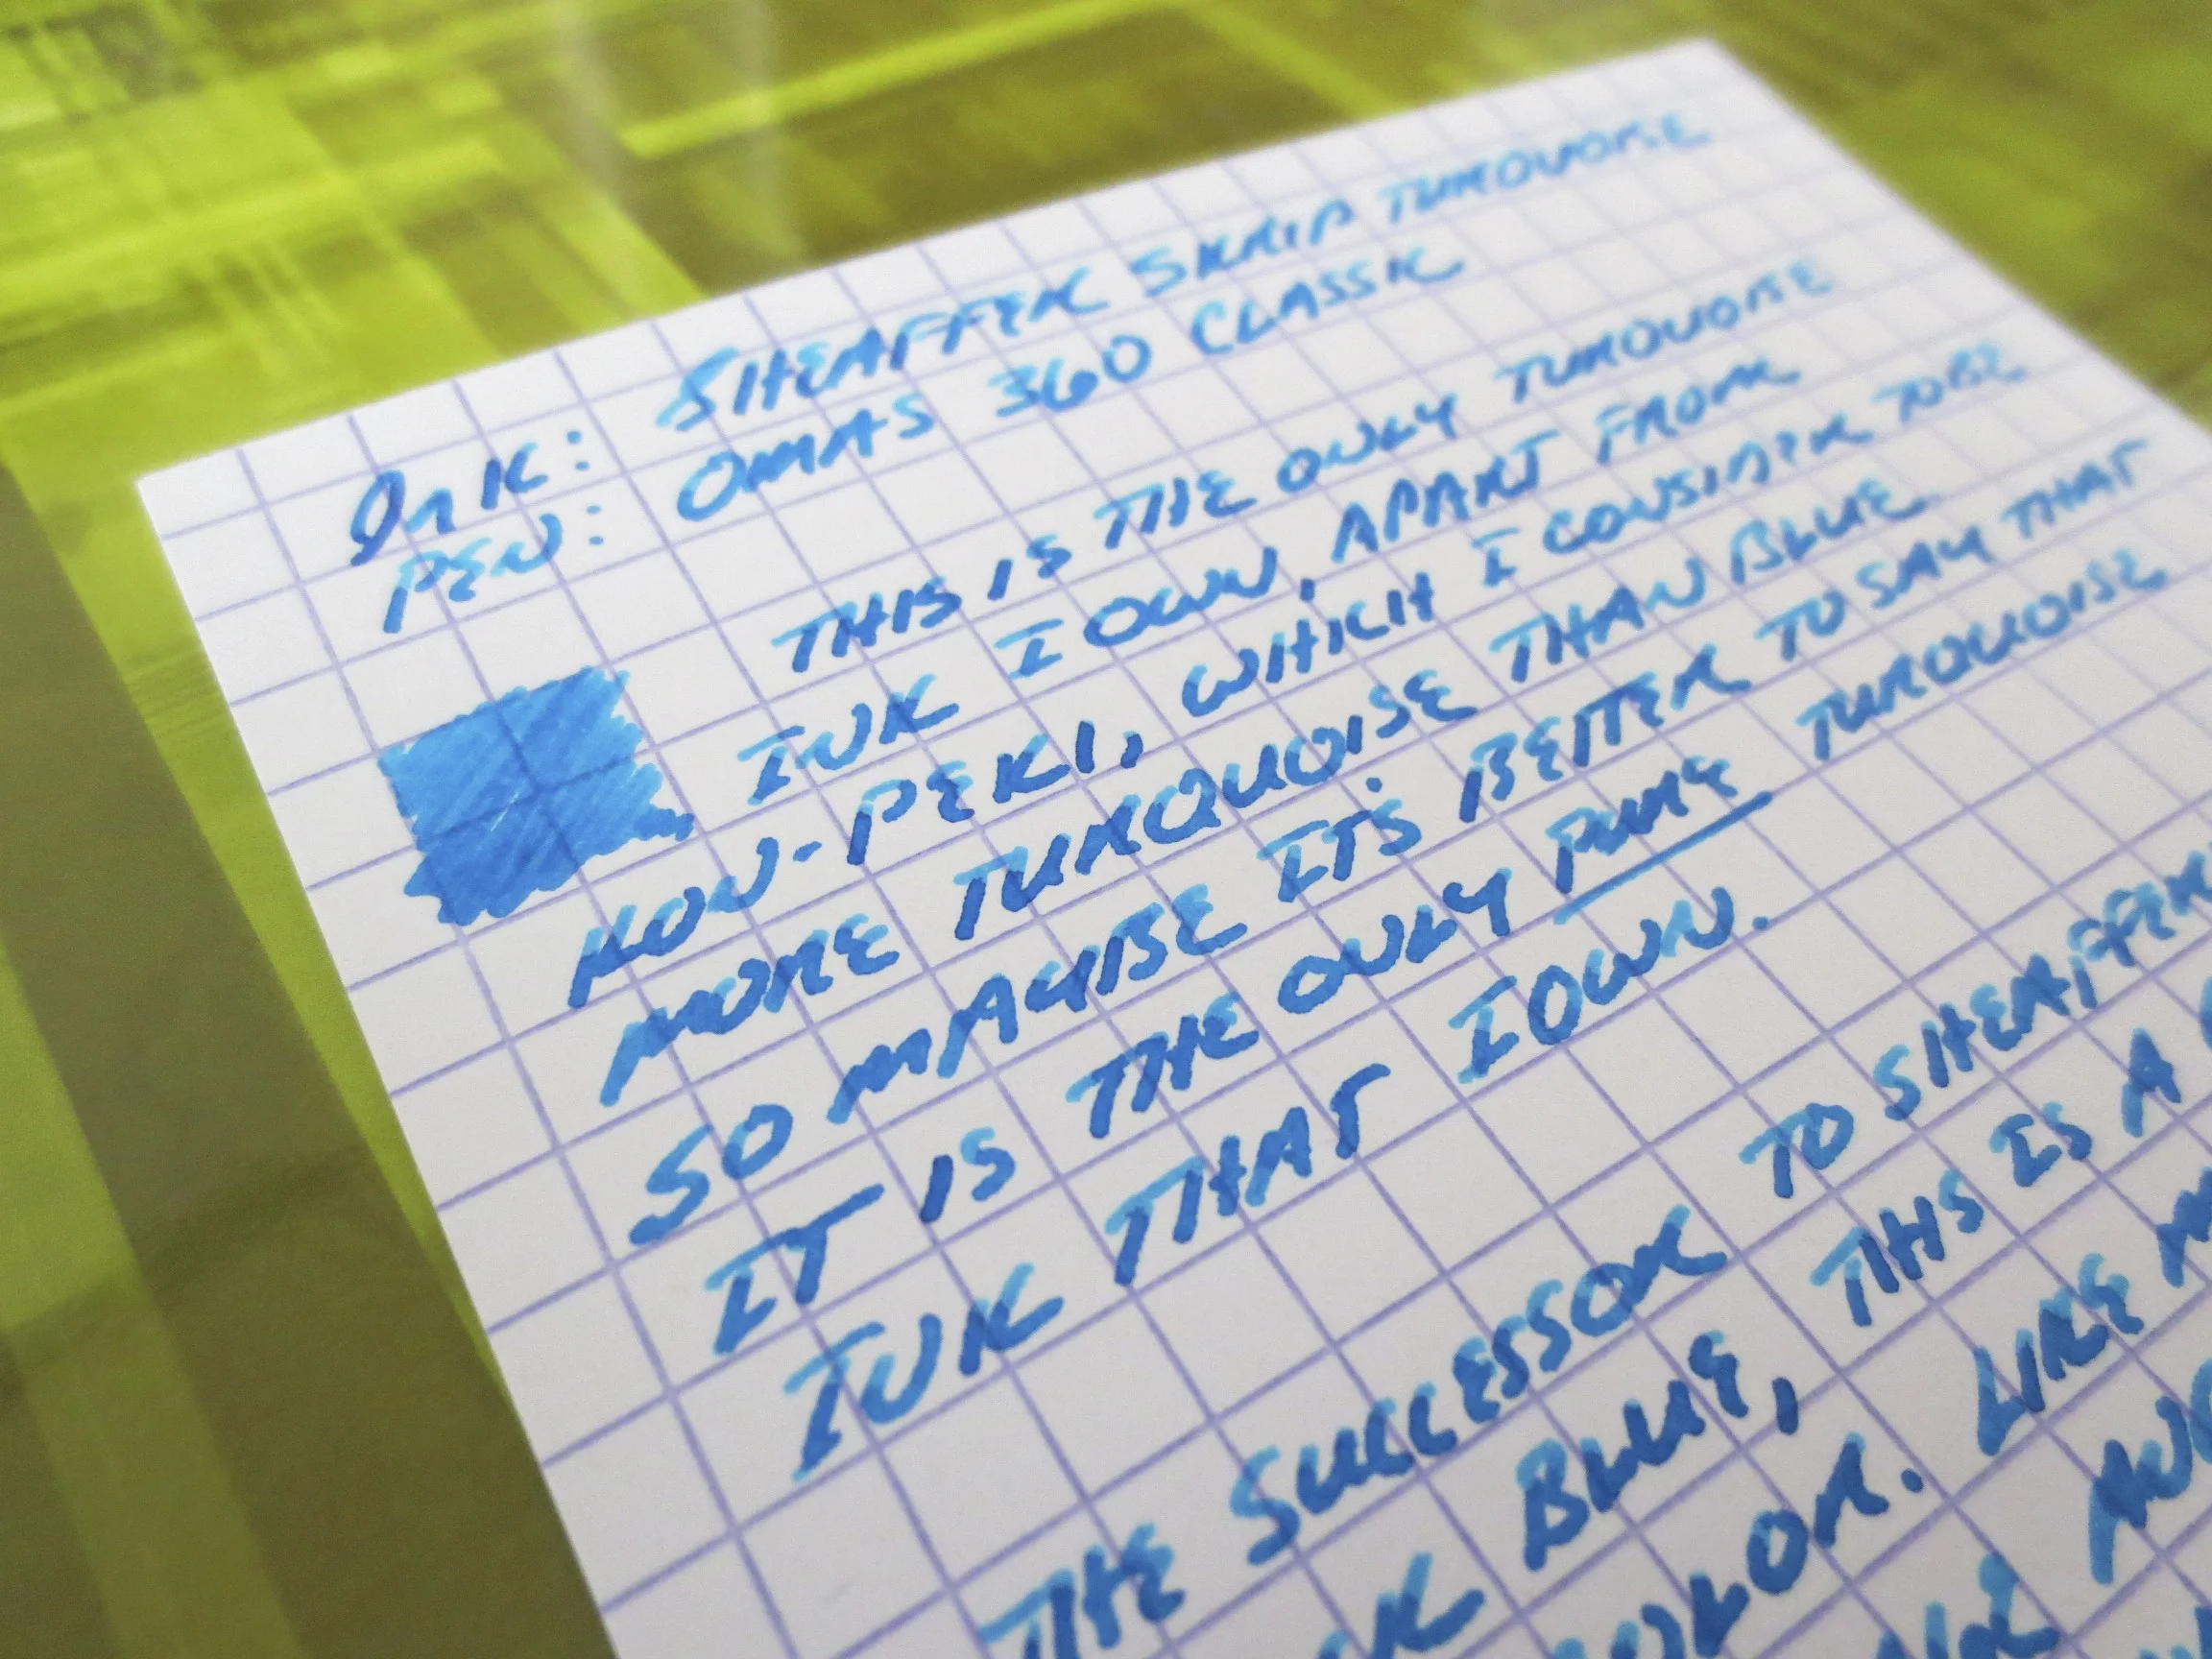 Ink: SHEAFFER SKRIP TURQUOISE
PEN: OMAS 360 CLASSIC
THIS IS THE ONLY TURQUOISE
INK I OWN, APART FROM
KON-PEKI, WHICH I CONSIDER TO BE
MORE TURQUOISE THAN BLUE.
SO MAYBE IT'S BETTER TO SAY THAT
IT IS THE ONLY PURE TURQUOISE
INK THAT I OWN.
THE SUCCESSOR TO SHEAFFER
BLUE, THIS IS A
LIKE